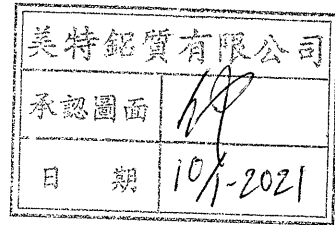 美特鋁質有限公司
承認圖面
日 期 10/1-2021